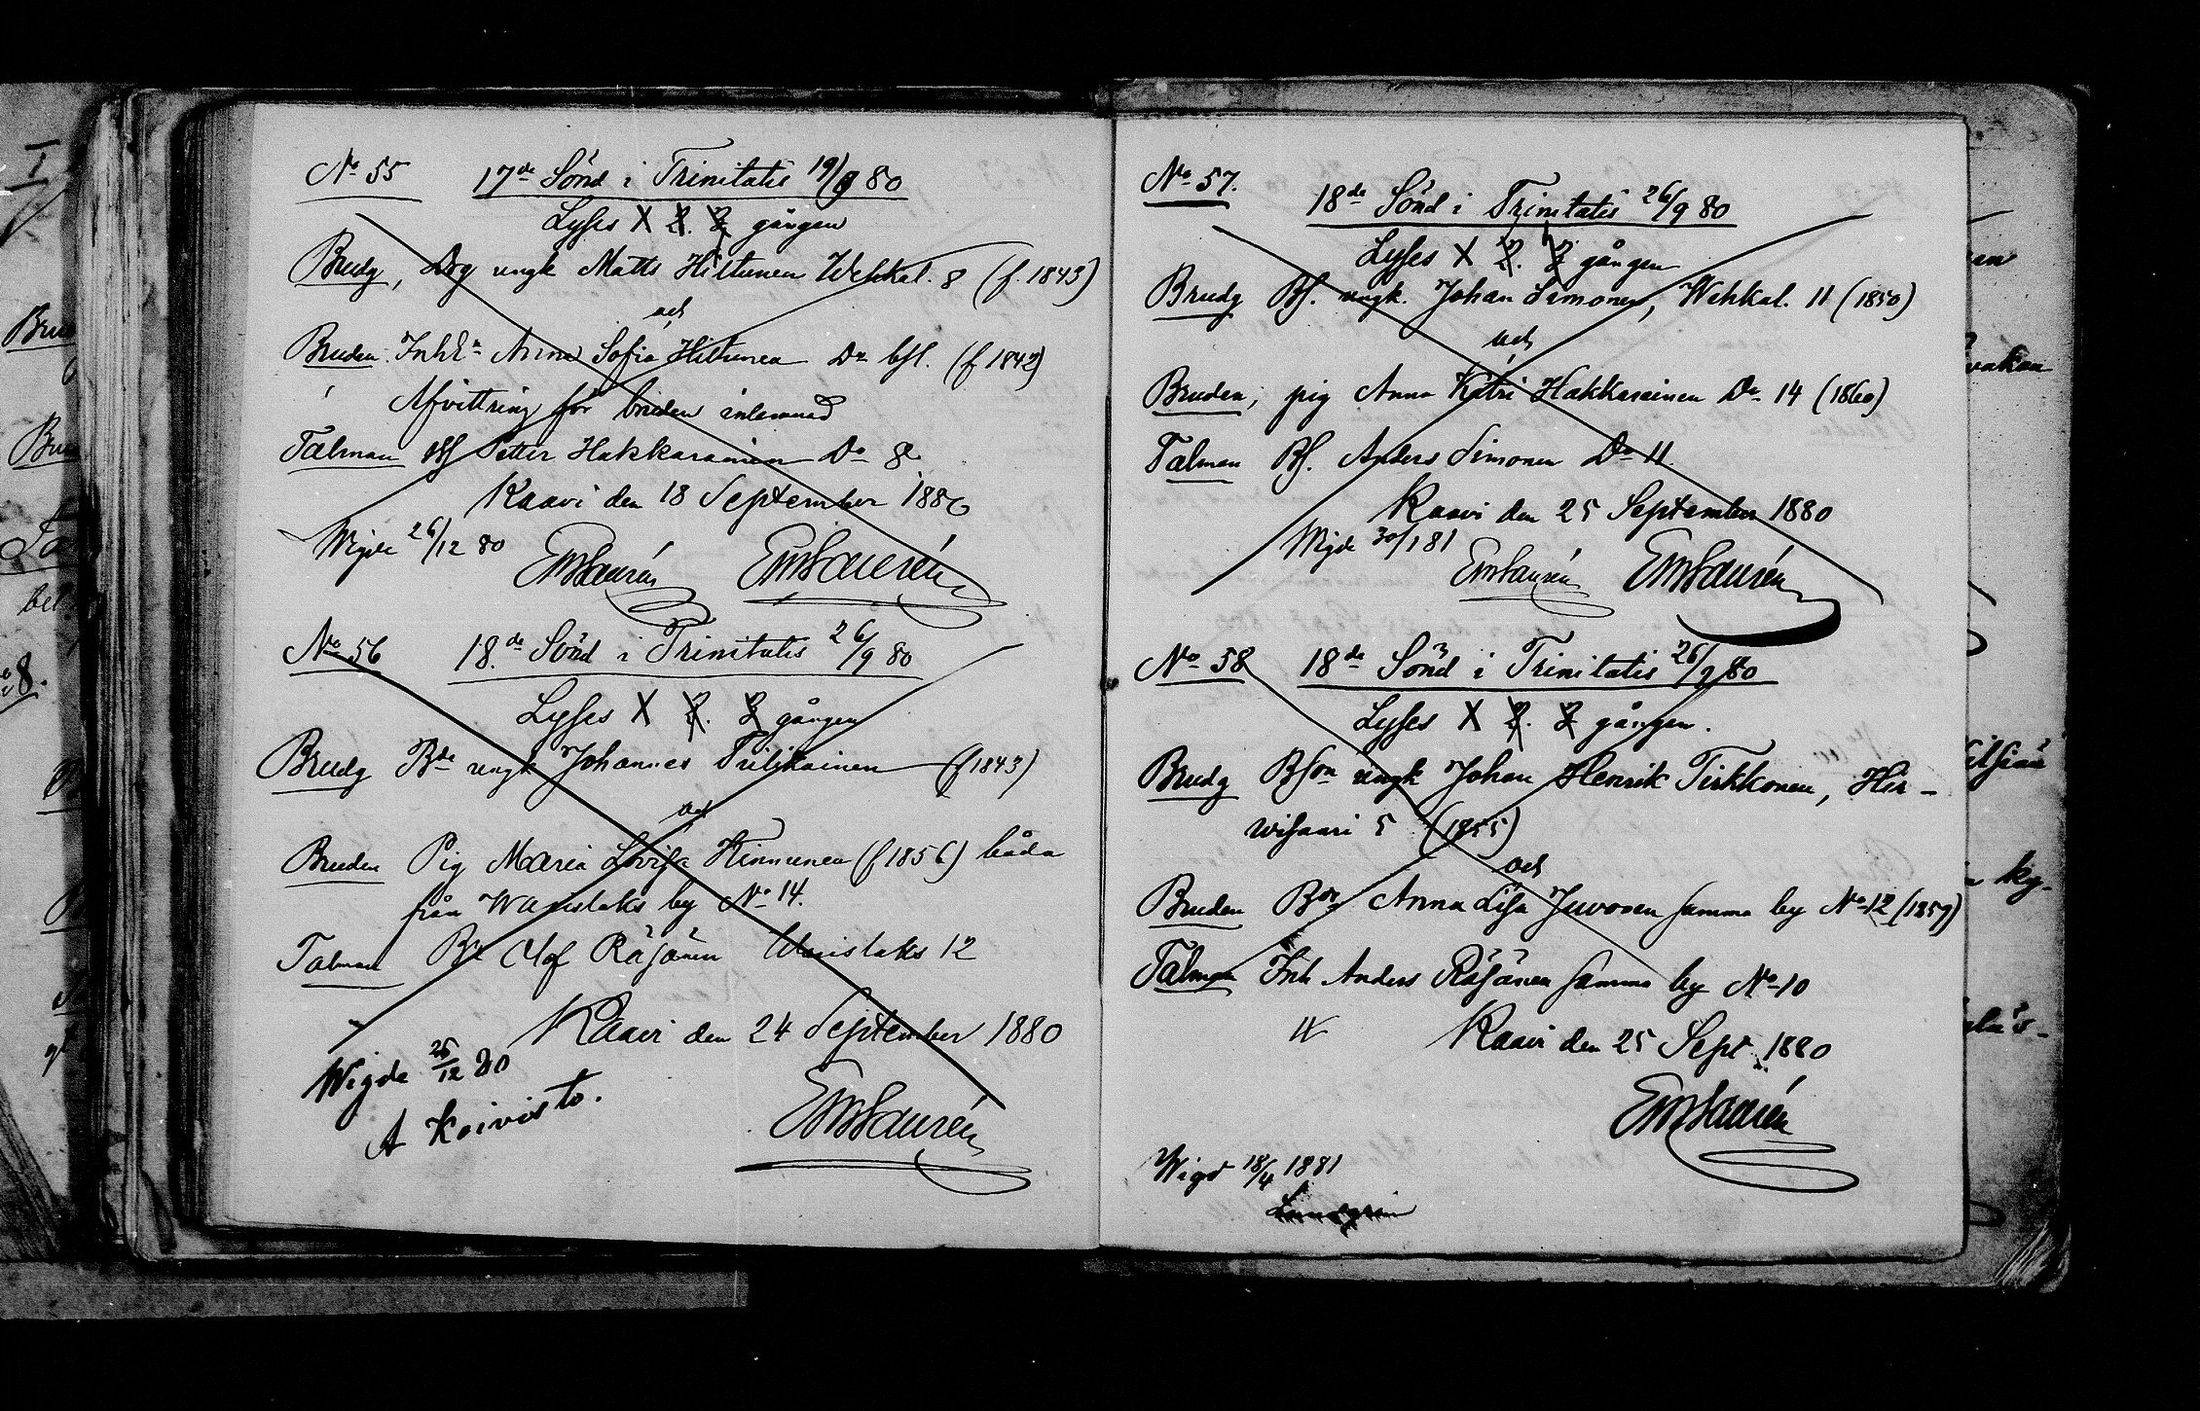 No 55 17de Sönd i Trinitatis 19/9 80
Lyses 1. 2. 3 gången
Brudg, Drg ungk Matts Hiltunen Wehkal. 8 (f. 1843)
och
Bruden Inhda Anna Sofia Hiltunen Do (f 1842)
Afvittring för bruden inlemnad
Talman Petter Hakkarainen Do 8
Kaavi den 18 September 1880
Wigde 26/12 80
EmLaurén EmLaurén
No 56 18de Sönd i Trinitatis 26/9 80
Lyses 1. 2. 3 gången
Brudg Bde ungk Johannes Piilikainen (f 1843)
och
Bruden Pig Maria Lovisa Kinnunen (f 1856) båda
från Wanislaks by No 14.
Talman Olof Räsänen Wanislaks 12
Kaavi den 24 September 1880
Wigde 26/12 80
A Koivisto.
EmLaurén
No 57. 18de Sönd i Trinitatis 26/9 80
Lyses 1. 2. 3 gången
Brudg Bf. ungk. Johan Simonen, Wehkal. 11 (1850)
och
Bruden, pig Anna Katri Hakkarainen Do 14 (1860)
Talman Bf. Anders Simonen Do 11.
Kaavi den 25 September 1880
Wigde 30/1 81
EmLaurén EmLaurén
No 58 18de Sönd i Trinitatis 26/9 80
Lyses 1. 2. 3 gången.
Brudg Bson ungk Johan Henrik Tirkkonen, Hir-
wisaari 5 (1855)
och
Bruden Bdr Anna Lisa Juvonen samma by No 12 (1857)
Talman Inh Anders Räsänen samma by No 10
Kaavi den 25 Sept. 1880
EmLaurén
Wigd 18/4 1881